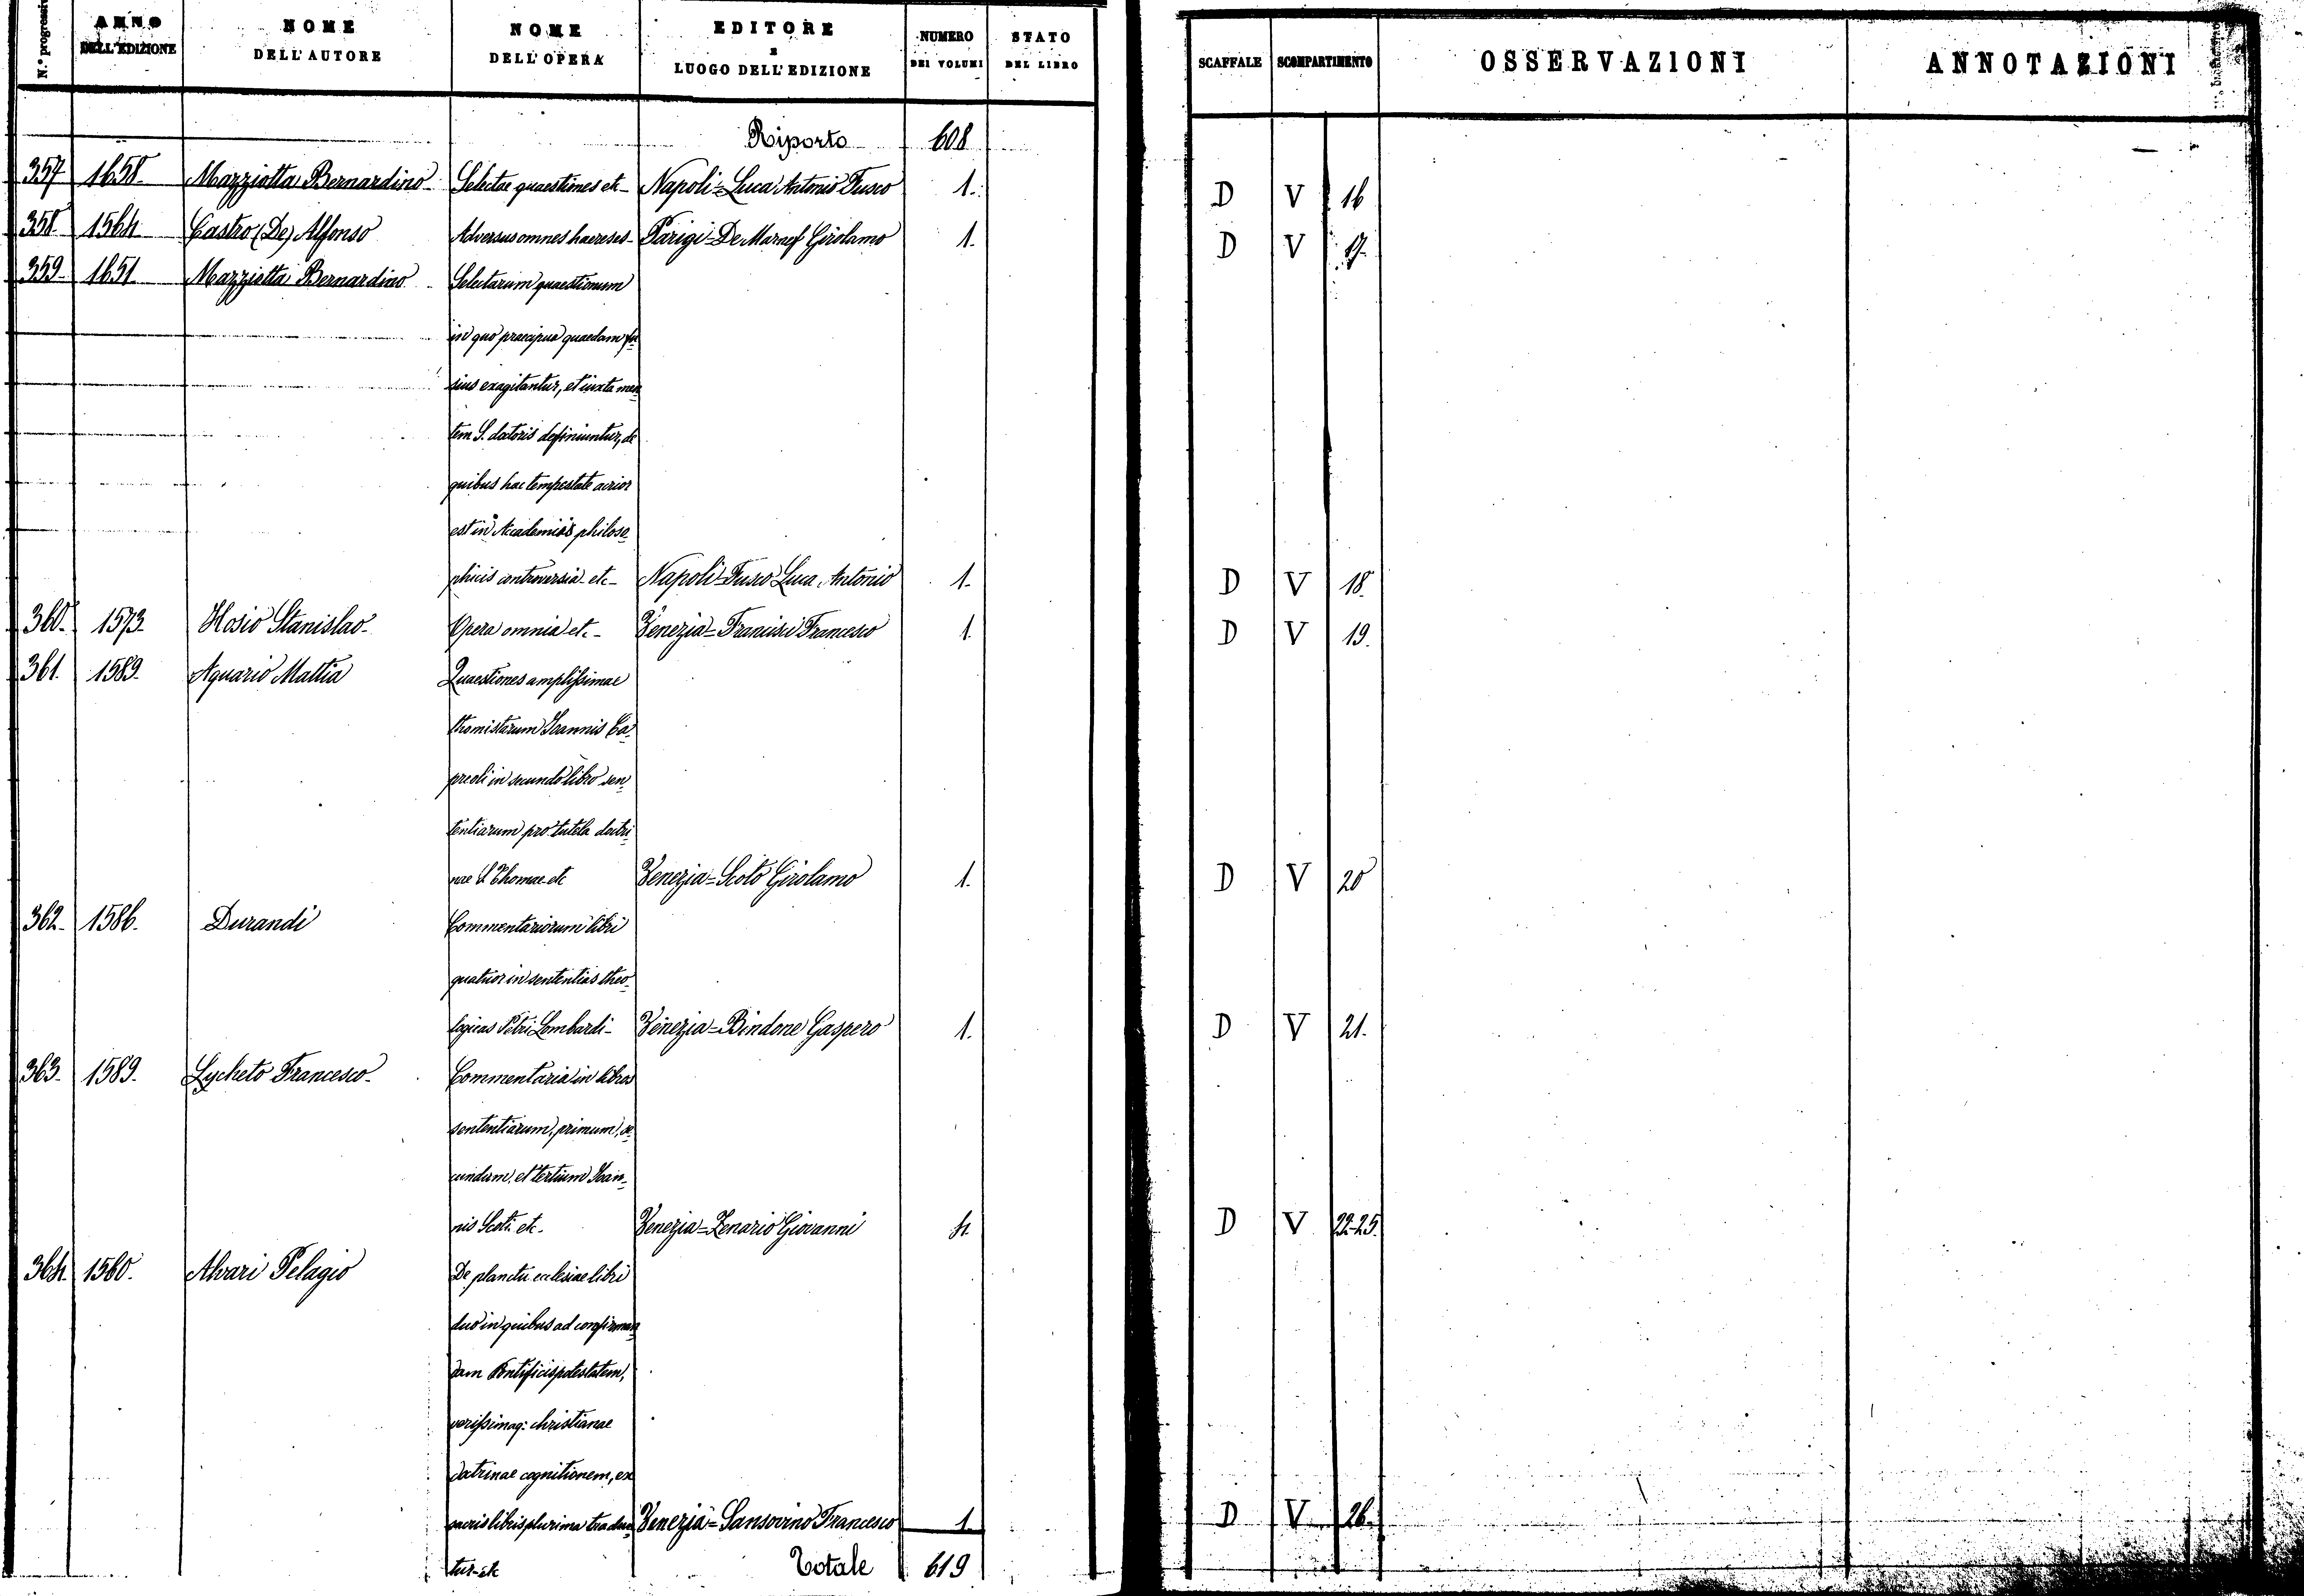 N.° progressivo ANNO DELL'EDIZIONE NOME DELL'AUTORE NOME DELL'OPERA EDITORE E LUOGO DELL'EDIZIONE NUMERO DEI VOLUMI STATO DEL LIBRO SCAFFALE SCOMPARTIMENTO OSSERVAZIONI ANNOTAZIONI
Riporto 608
357 1658 Mazziotta Bernardino Selectae quaestiones etc Napoli = Luca Antonio Fusco 1. D V 16
358 1564 Castro (De) Alfonso Adversus omnes haereses Parigi = De Marnef Girolamo 1. D V 17.
359 1651 Mazziotta Bernardino Selectarum quaestionum
in quo praecipua quaedam fu
sius exagitantur, et iuxta men
tem S. doctoris definiuntur, de
quibus hac tempestate acrior
est in Academiis philoso
phicis controversia etc Napoli = Fusco Luca Antonio 1. D V 18.
360. 1573. Hosio Stanislao Opera omnia etc Venezia = Francisci Francesco 1. D V 19.
361. 1589. Aquario Mattia Quaestiones amplissimae
thomistarum Joannis Ca
preoli in secundo libro sen
tentiarum pro tutela doctri
nae S. Thomae etc Venezia = Scoto Girolamo 1. D V 20
362. 1586. Durandi Commentariorum libri
quatuor in sententias theo
logicas Petri Lombardi Venezia = Bindone Gaspero 1. D V 21.
363. 1589. Lycheto Francesco Commentaria in libros
sententiarum, primum, se
cundum, et tertium Joan
nis Scoti etc Venezia = Zenario Giovanni 4. D V 22-25.
364. 1560. Alvari Pelagio De planctu ecclesiae libri
duo in quibus ad confirman
dam Pontificis potestatem,
verissimaq: christianae
doctrinae cognitionem, ex
sacris libris plurima tradun Venezia = Sansovino Francesco 1. D V 26.
tur etc Totale 619